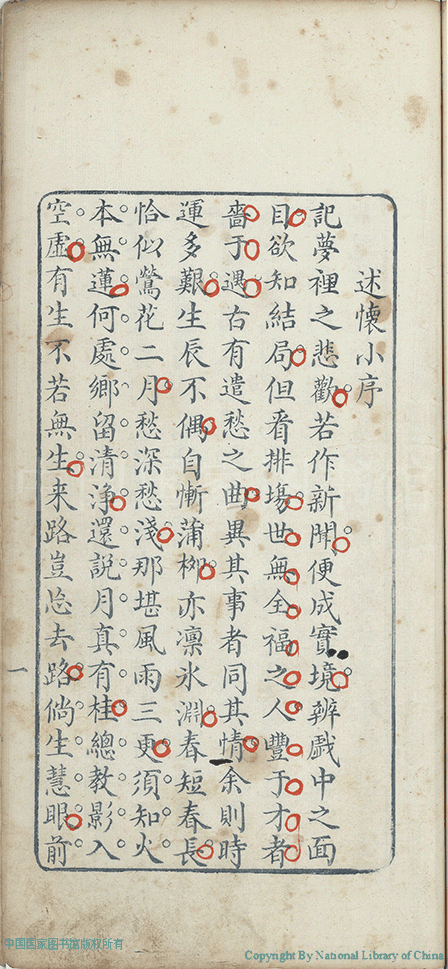 述懷小序
記夢裡之悲歡若作新聞便成實境辨戲中之面
目欲知結局但看排場世無全福之人豐于才者
嗇于遇古有遣愁之曲異其事者同其情余則時
運多艱生辰不偶自慚蒲柳亦凜氷淵春短春長
恰似鶯花二月愁深愁淺那堪風雨三更須知火
本無蓮何處鄉留清淨還說月真有桂總教影入
空虛有生不若無生来路豈忘去路倘生慧眼前
一
中国国家图书馆版权所有
Copyright By National Library of China